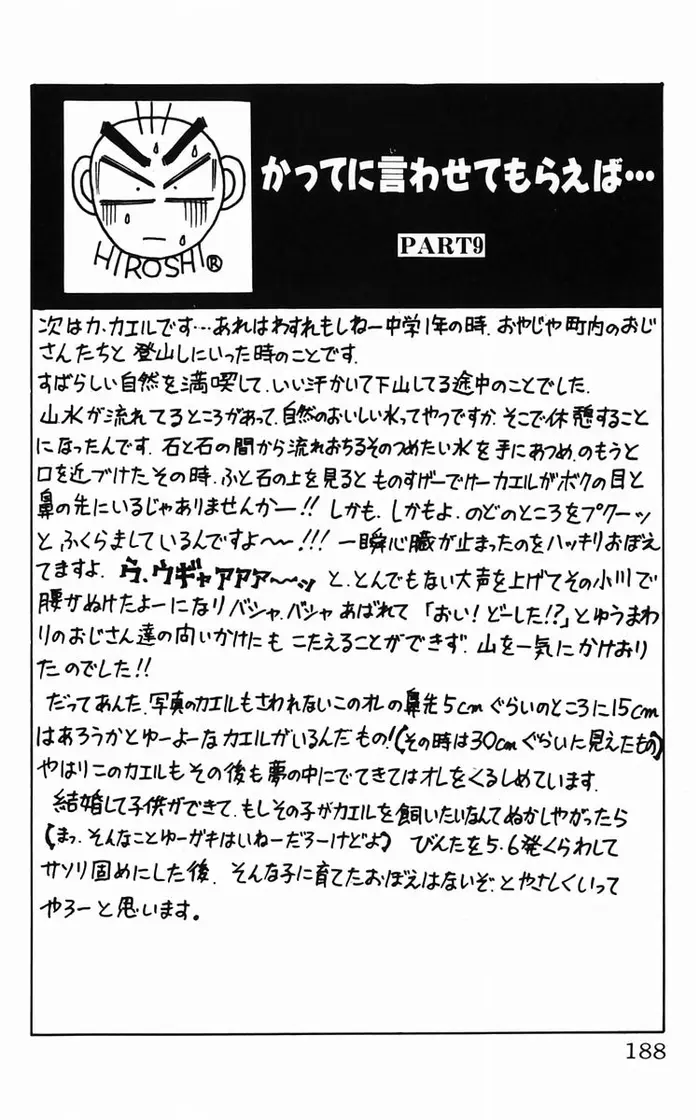 かってに言わせてもらえば…
い
PART9
HIROSHI®
次はカ、カエルです…あれはわすれもしねー中学1年の時、おやじや町内のおじ
さんたちと登山しにいった時のことです。
すばらしい自然を満喫して、いい汗かいて下山してる途中のことでした。
山水が流れてるところがあって、自然のおいしい水ってやつですか、そこで休憩すること
になったんです。石と石の間から流れおちるそのつめたい水を手にあつめ、のもうと
口を近づけたその時、ふと石の上を見るとものすげーでけーカエルがボクの目と
鼻の先にいるじゃありませんかー!! しかも、しかもよ、のどのところをプクーッ
とふくらましているんですよ〜〜!!! 一瞬心臓が止まったのをハッキリおぼえ
てますよ。ウ、ウギャアアア〜〜ッ と、とんでもない大声を上げてその小川で
腰がぬけたよーになりバシャ、バシャあばれて「おい!どーした!?」とゆうまわ
りのおじさん達の問いかけにもこたえることができず、山を一気にかけおり
たのでした!!
だってあんた、写真のカエルもさわれないこのオレの鼻先5cmぐらいのところに15cm
はあろうかとゆーよーなカエルがいるんだもの!(その時は30cmぐらいに見えたもの)
やはりこのカエルもその後も夢の中にでてきてはオレをくるしめています。
結婚して子供ができて、もしその子がカエルを飼いたいなんてぬかしやがったら
(まっ、そんなことゆーガキはいねーだろーけどよ) びんたを5・6発くらわして
サソリ固めにした後、そんな子に育てたおぼえはないぞ、とやさしくいって
やろーと思います。
188